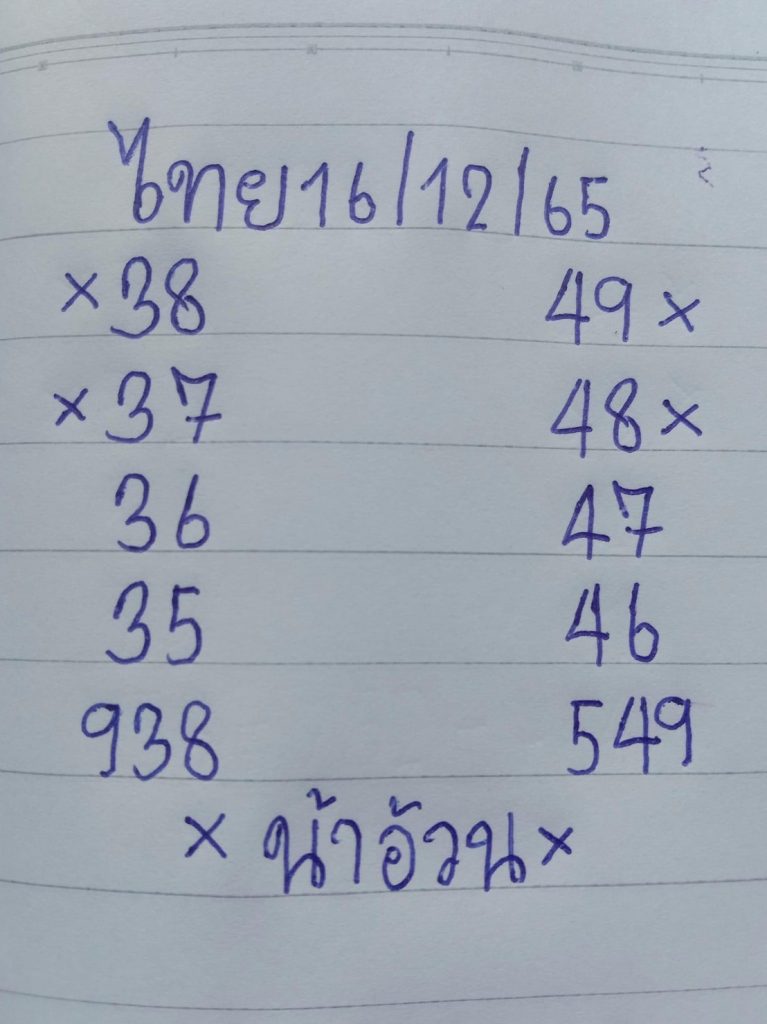 ไทย16/12/65
×38 49×
×37 48×
36 47
35 46
938 549
×น้าอ้วน×